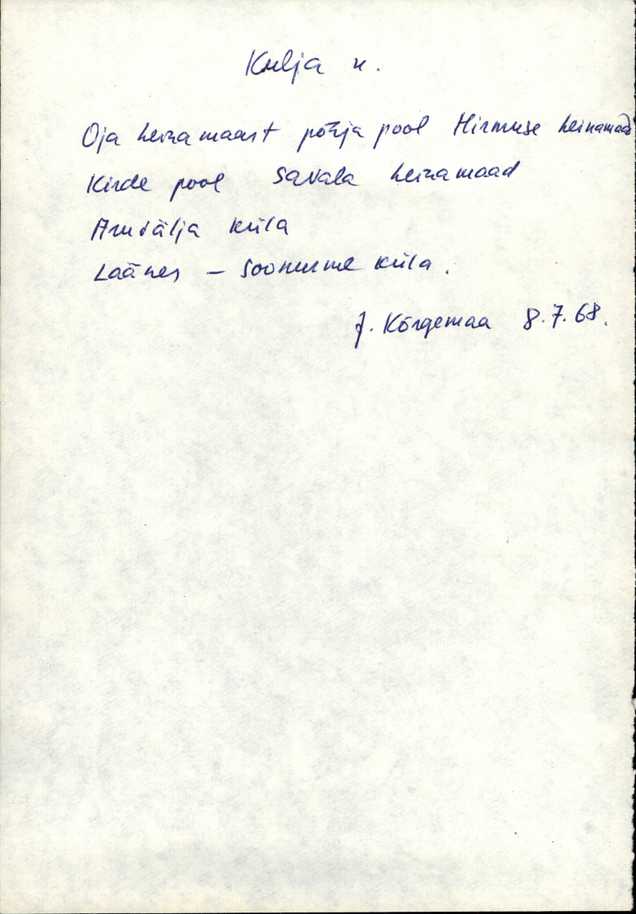 Kulja n.
Oja heinamaast põhja pool Hirmuse heinamaad
Kirde pool Savala heinamaad
Aruvälja küla
Läänes – Soonurme küla.
J. Kõrgemaa 8.7.68.